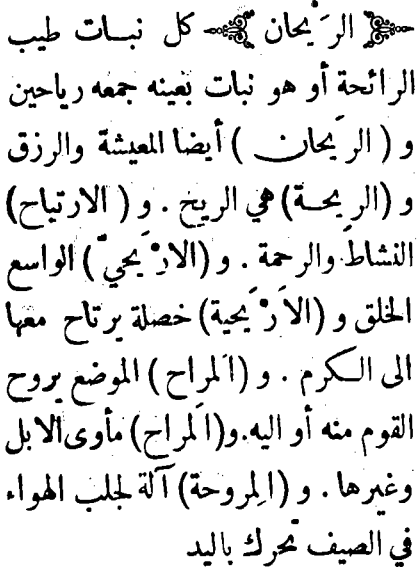 ﴿ الرَيْحان ﴾ كل نبات طيب
الرائحة أو هو نبات بعينه جمعه رياحين
و ( الرَيحان ) أيضا المعيشة والرزق
و (الريحة) هي الريح . و ( الارتياح)
النشاط والرحمة . و (الارْيحيّ) الواسع
الخلق و (الأَرْيحية) خصلة يرتاح معها
الى الكرم . و (المَراح ) الموضع يروح
القوم منه أو اليه. و(المَراح) مأوى الابل
وغيرها . و (المِروحة) آلة لجلب الهواء
في الصيف تحرك باليد